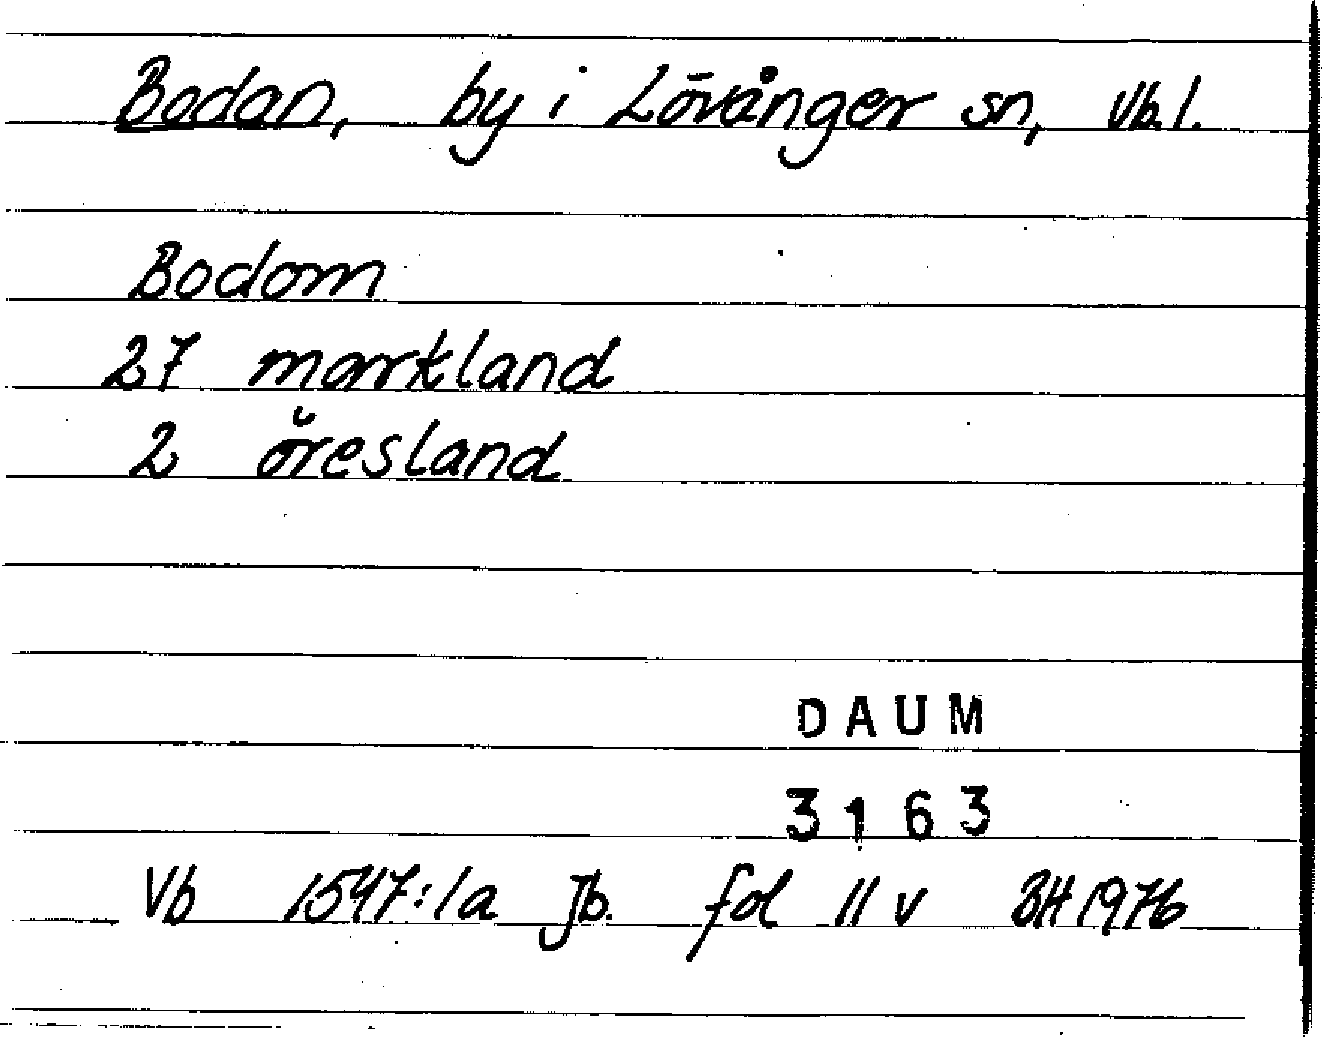 Bodan, by i Lövånger sn, Vb.l.
Bodom
27 markland
2 öresland
DAUM
3163
Vb 1547:1a Jb. fol 11 v BH 1976